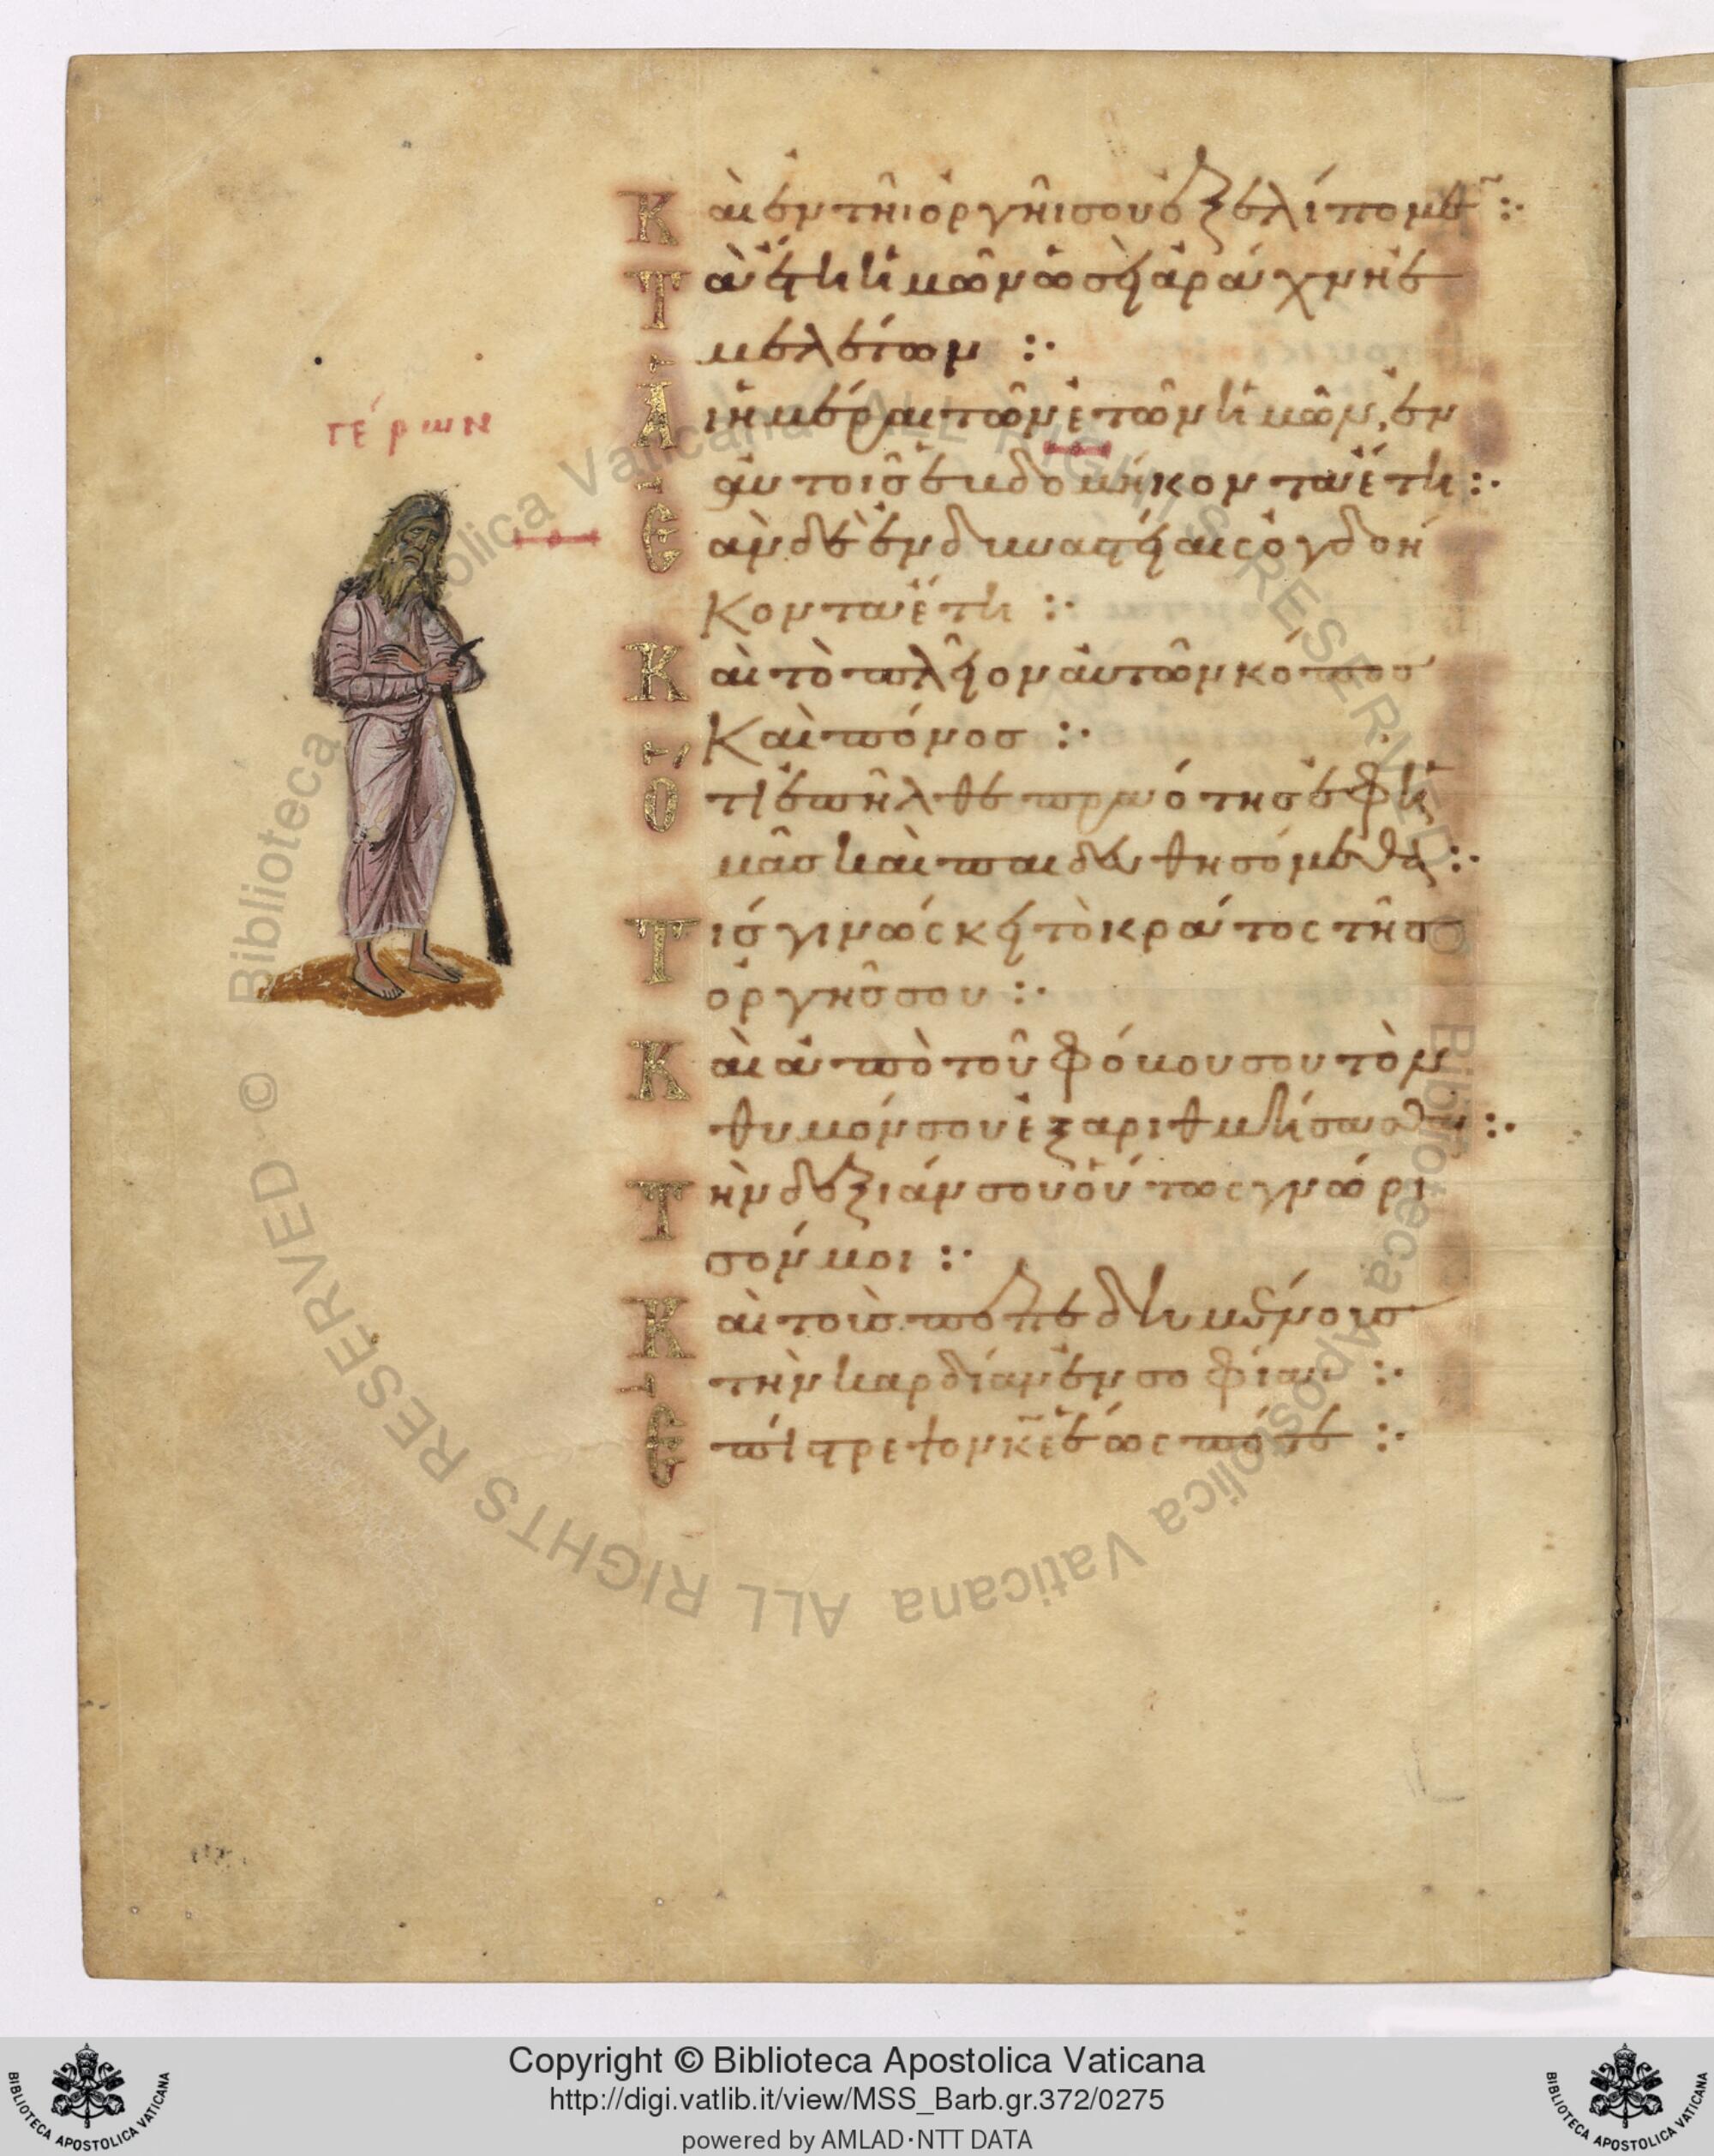 Καὶ ἐν τῆι ὀργῆι σου ἐξελίπομεν :·
Τὰ ἔτη ἡμῶν ὡσεὶ ἀράχνη ἐ
μελέτων :·
γέρων
Αἱ ἡμέραι τῶν ἐτῶν ἡμῶν, ἐν
αὐτοῖς ἑβδομήκοντα ἔτη :·
Ἐὰν δὲ ἐν δυναστείαις ὀγδοή
κοντα ἔτη :·
Καὶ τὸ πλεῖον αὐτῶν κόπος
καὶ πόνος :·
Ὅτι ἐπῆλθε πραότης ἐφ ἡ
μᾶς καὶ παιδευθησόμεθα :·
Τίς γινώσκει τὸ κράτος τῆς
ὀργῆς σου :·
Καὶ ἀπὸ τοῦ φόβου σου τὸν
θυμόν σου ἐξαριθμήσασθαι :·
Τὴν δεξιάν σου οὕτως γνώρι
σόν μοι :·
Καὶ τοὺς πεπεδημένους
τὴν καρδίαν ἐν σοφίαι :·
Ἐπίστρεψον κε ἕως πότε :·
Copyright © Biblioteca Apostolica Vaticana
http://digi.vatlib.it/view/MSS_Barb.gr.372/0275
powered by AMLAD·NTT DATA
BIBLIOTECA APOSTOLICA VATICANA
BIBLIOTECA APOSTOLICA VATICANA
© Biblioteca Apostolica Vaticana ALL RIGHTS RESERVED
© Biblioteca Apostolica Vaticana ALL RIGHTS RESERVED